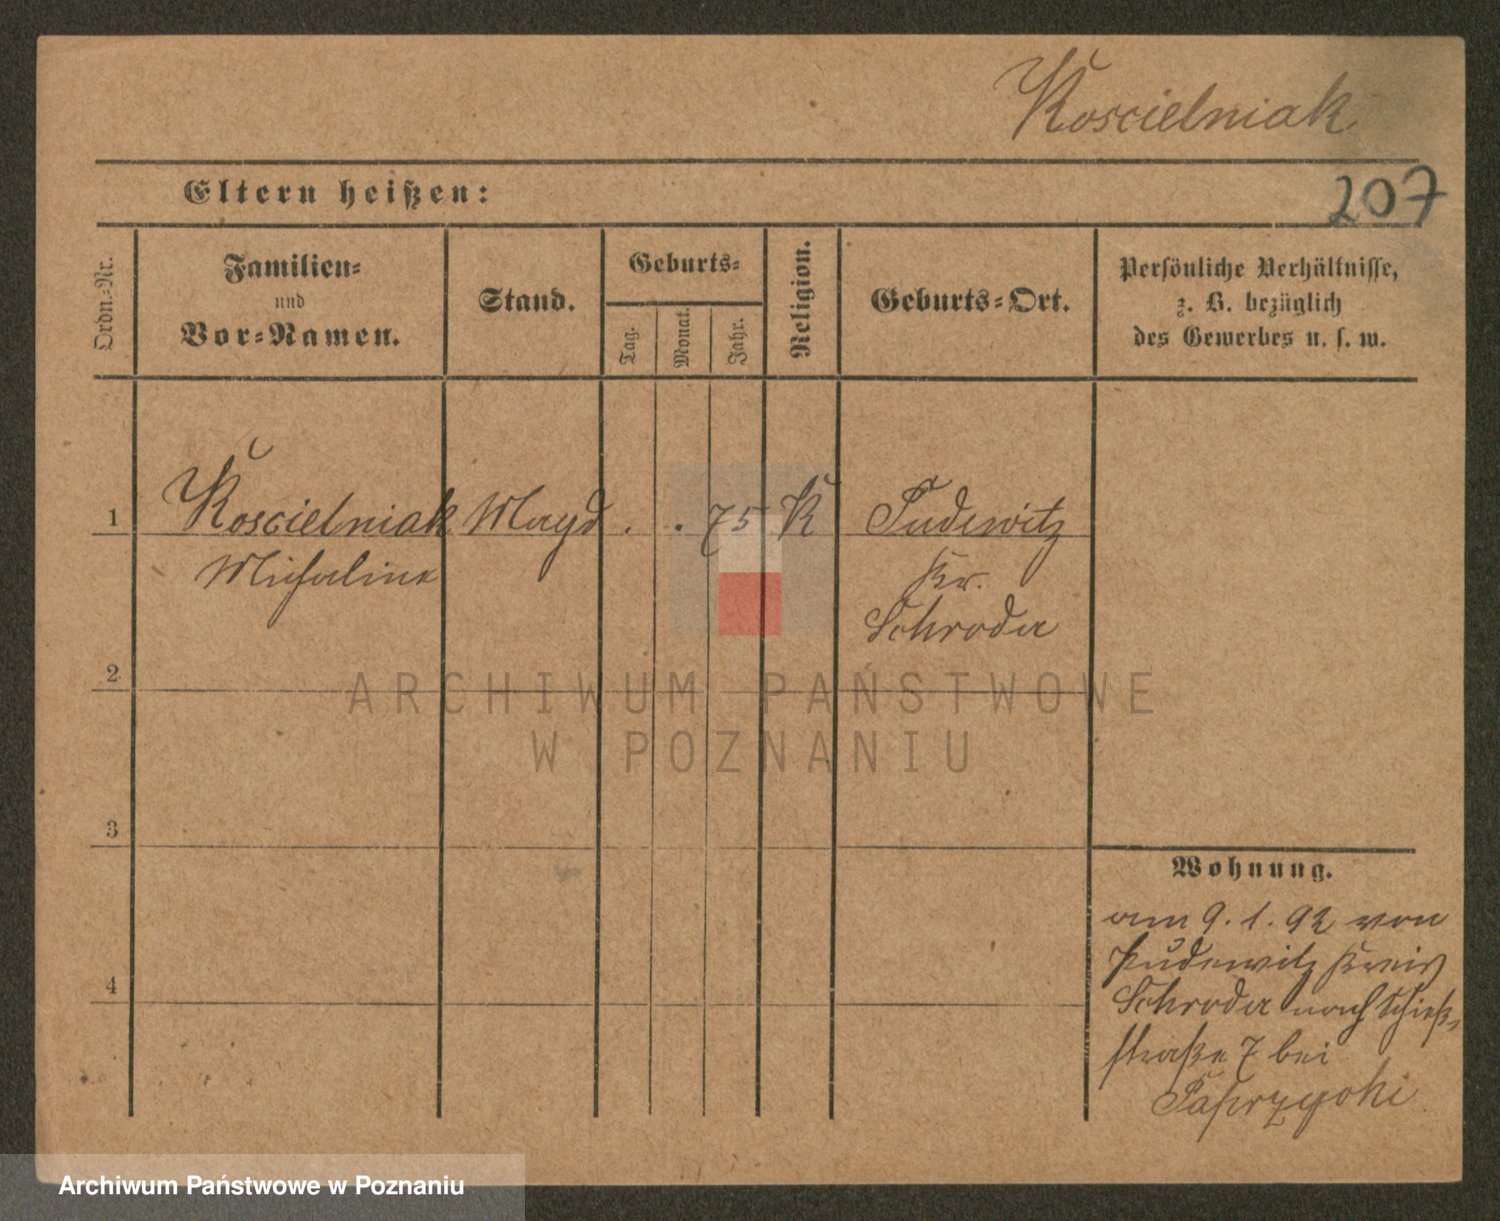 Koscielniak
Eltern heißen:
207
Ordn.-Nr.
Familien-
und
Vor-Namen.
Stand.
Geburts-
Tag.
Monat.
Jahr.
Religion.
Geburts-Ort.
Persönliche Verhältnisse,
z. B. bezüglich
des Gewerbes u. s. w.
1 Koscielniak Magd . . 75 K Pudewitz
Michaline Kr.
Schroda
2
ARCHIWUM PAŃSTWOWE
W POZNANIU
3
Wohnung.
am 9. 1. 92 von
Pudewitz Kreis
4 Schroda nach Schieß-
straße 7 bei
Archiwum Państwowe w Poznaniu